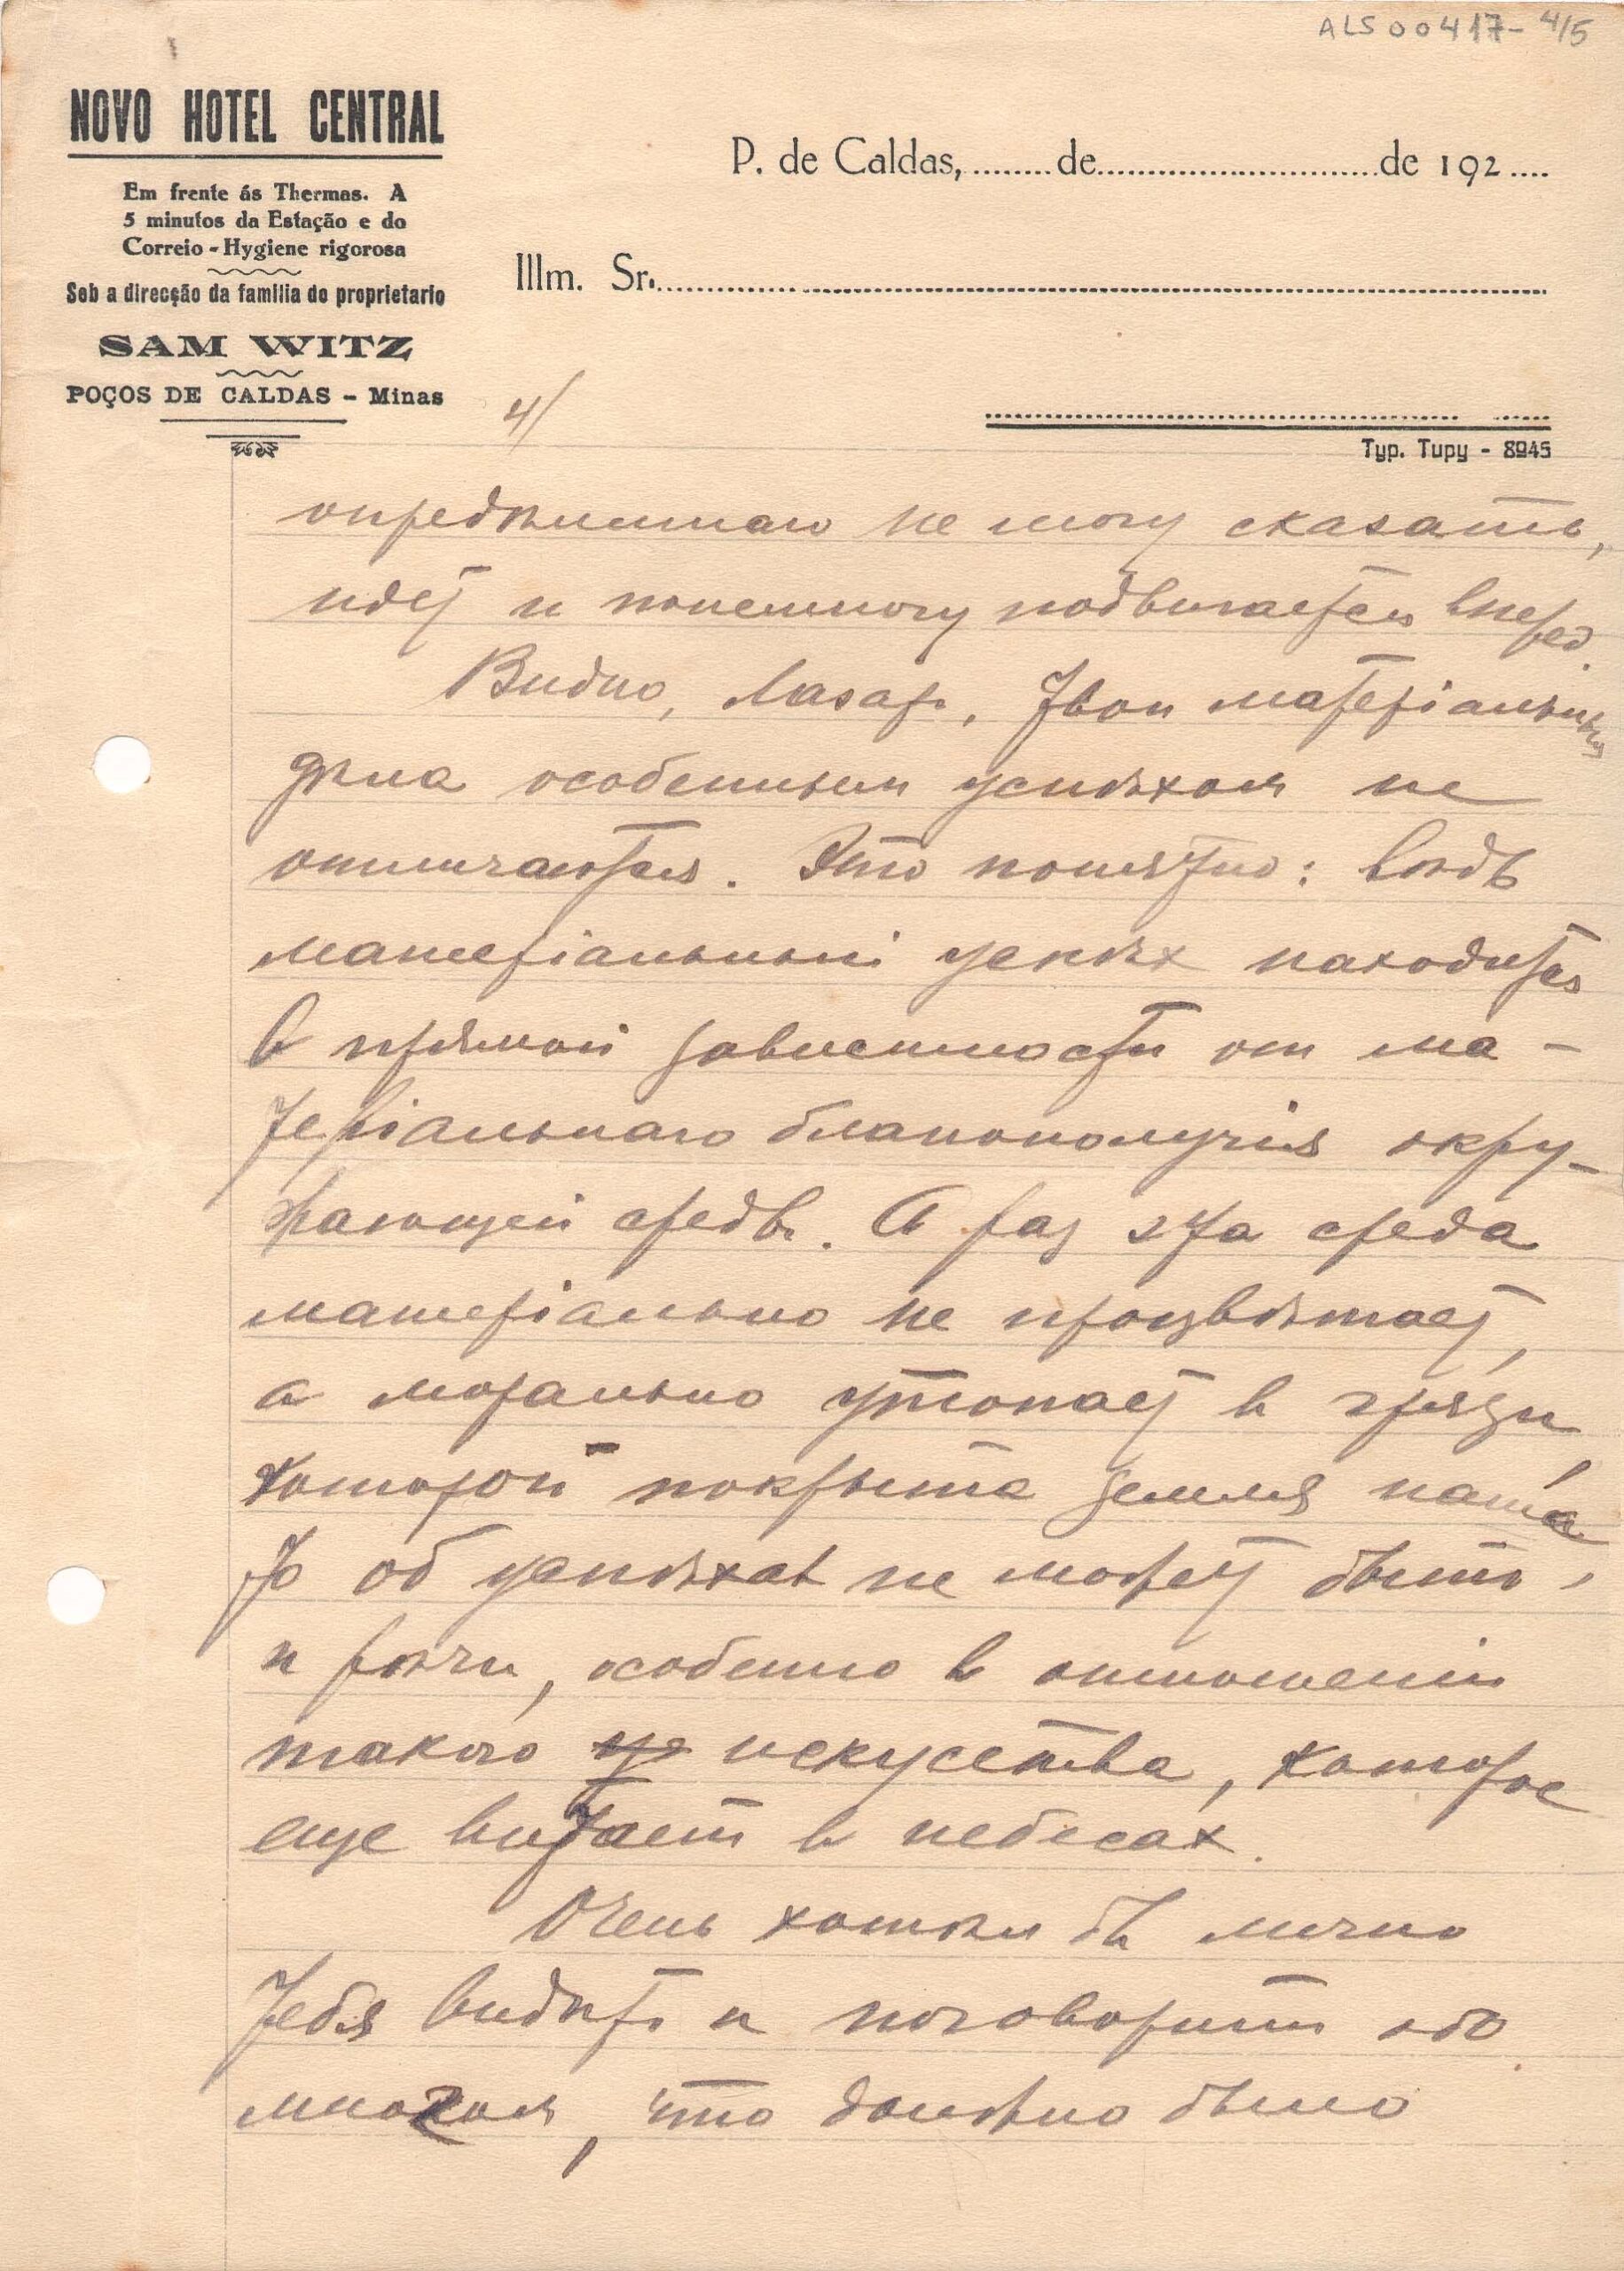 ALS00417-4/5
NOVO HOTEL CENTRAL
Em frente ás Thermas. A
5 minutos da Estação e do
Correio - Hygiene rigorosa
Sob a direcção da familia do proprietario
SAM WITZ
POÇOS DE CALDAS - Minas
P. de Caldas, ........ de ............................ de 192 ....
Illm. Sr. ............................................................
Typ. Tupy - 8945
4/
опредѣленнаго не могу сказать,
идет и понемногу подвигается вперед.
Видно, Лазарь, твои матеріальныя
дѣла особенным успѣхом не
отличаются. Это понятно: вѣдь
матеріальный успѣх находится
в прямой зависимости от ма-
теріальнаго благополучія окру-
жающей среды. А раз эта среда
матеріально не процвѣтает,
а морально утопает в грязи,
которой покрыта земля наша
то об успѣхах не может быть,
и рѣчи, особенно в отношеніи
такого искусства, которое
еще витает в небесах.
Очень хотѣл бы лично
тебя видѣть и поговорить обо
многом, что должно было